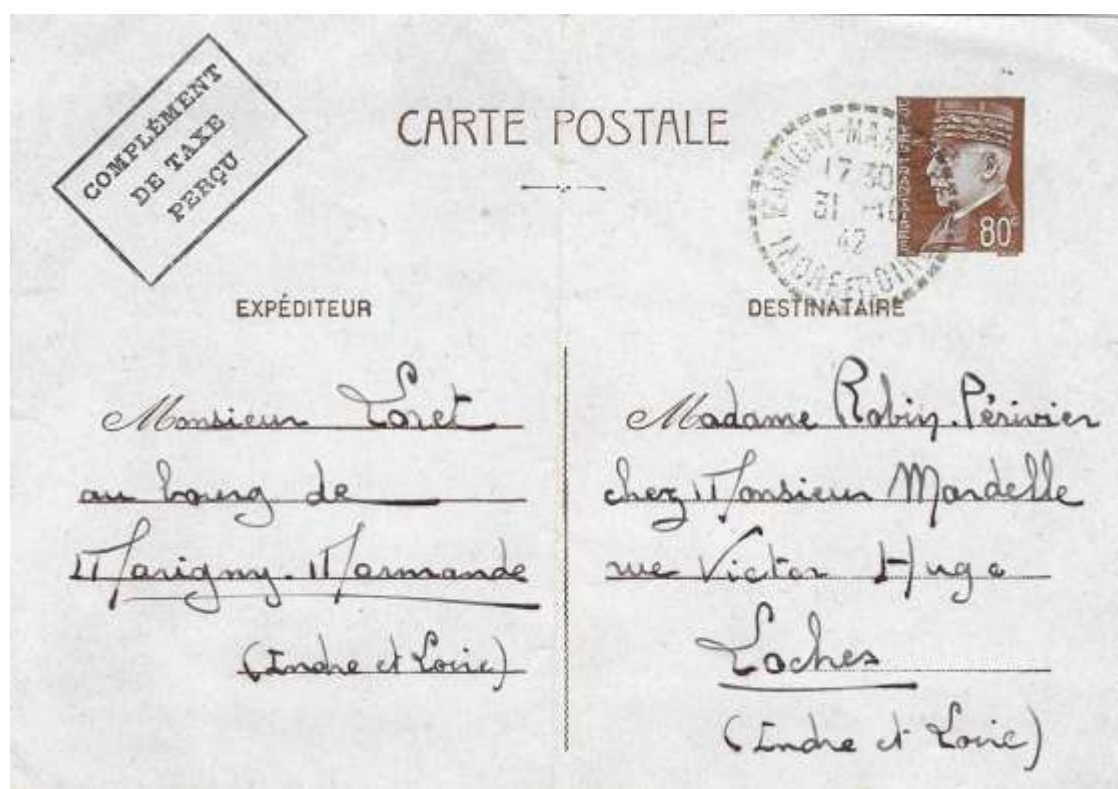 COMPLÉMENT
DE TAXE
PERÇU
CARTE POSTALE
17 30
42
80c
EXPÉDITEUR
Monsieur Loret
au bourg de
Marigny-Marmande
(Indre et Loire)
DESTINATAIRE
Madame Robin-Périvier
chez Monsieur Mardelle
rue Victor Hugo
Loches
(Indre et Loire)